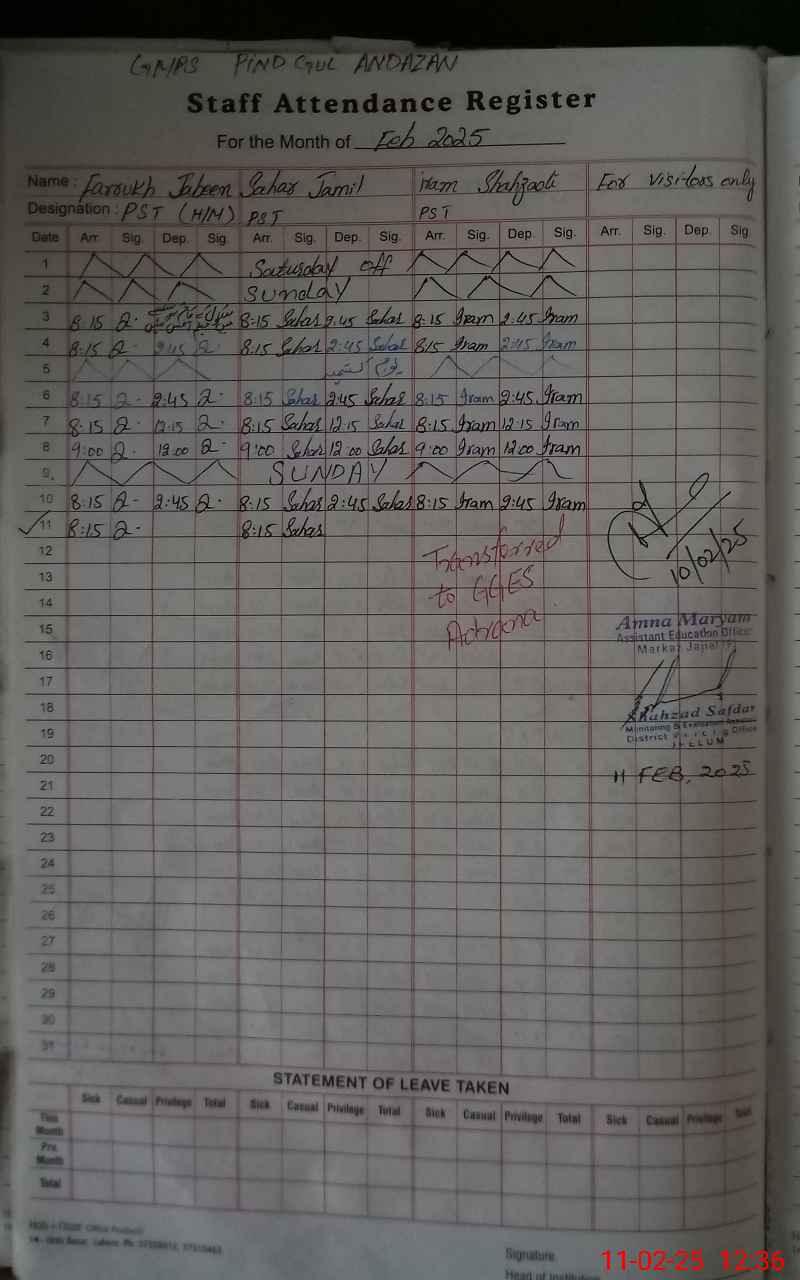 GMPS PIND GUL ANDAZAN
Staff Attendance Register
For the Month of Feb 2025
Name : Faroukh Jabeen Sahar Jamil Iram Shahzadi For Visitors only
Designation : PST (H/M) PST PST
Date Arr. Sig. Dep. Sig. Arr. Sig. Dep. Sig. Arr. Sig. Dep. Sig. Arr. Sig. Dep. Sig.
1 Saturday off
2 Sunday
3 8:15 8:15 Sahar 2:45 Sahar 8:15 Iram 2:45 Iram
4 8:15 2:45 8:15 Sahar 2:45 Sahar 8:15 Iram 2:45 Iram
5 یوم کشمیر
6 8:15 2:45 8:15 Sahar 2:45 Sahar 8:15 Iram 2:45 Iram
7 8:15 12:15 8:15 Sahar 12:15 Sahar 8:15 Iram 12:15 Iram
8 9:00 12:00 9:00 Sahar 12:00 Sahar 9:00 Iram 12:00 Iram
9 SUNDAY
10 8:15 2:45 8:15 Sahar 2:45 Sahar 8:15 Iram 2:45 Iram
11 8:15 8:15 Sahar
12 Transferred
13 to GGES 10/02/25
14
15 Amna Maryam
Assistant Education Officer
16 Markaz
17
18 Shahzad Safdar
19 Monitoring & Evaluation
District Office
JHELUM
20 11 FEB, 2025
21
22
23
24
25
26
27
28
29
30
31
STATEMENT OF LEAVE TAKEN
Sick Casual Privilege Total Sick Casual Privilege Total Sick Casual Privilege Total Sick Casual Privilege Total
This Month
Pre Month
Total
Signature
Head of
11-02-25 12:36